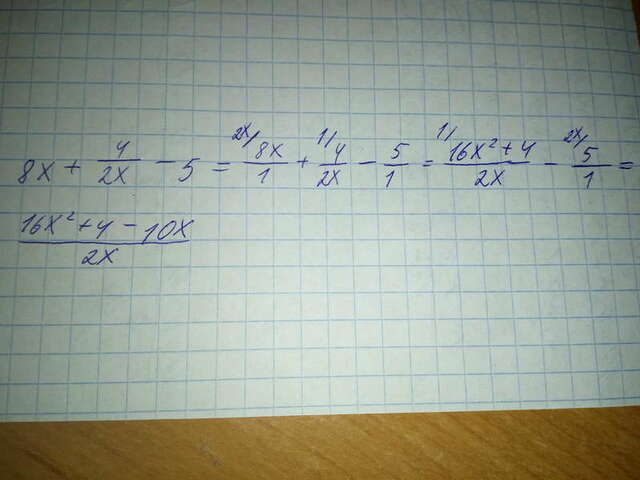 8x + 4/2x - 5 = 2x/ 8x/1 + 1/ 4/2x - 5/1 = 1/ 16x² + 4/2x - 2x/ 5/1 =
16x² + 4 - 10x/2x